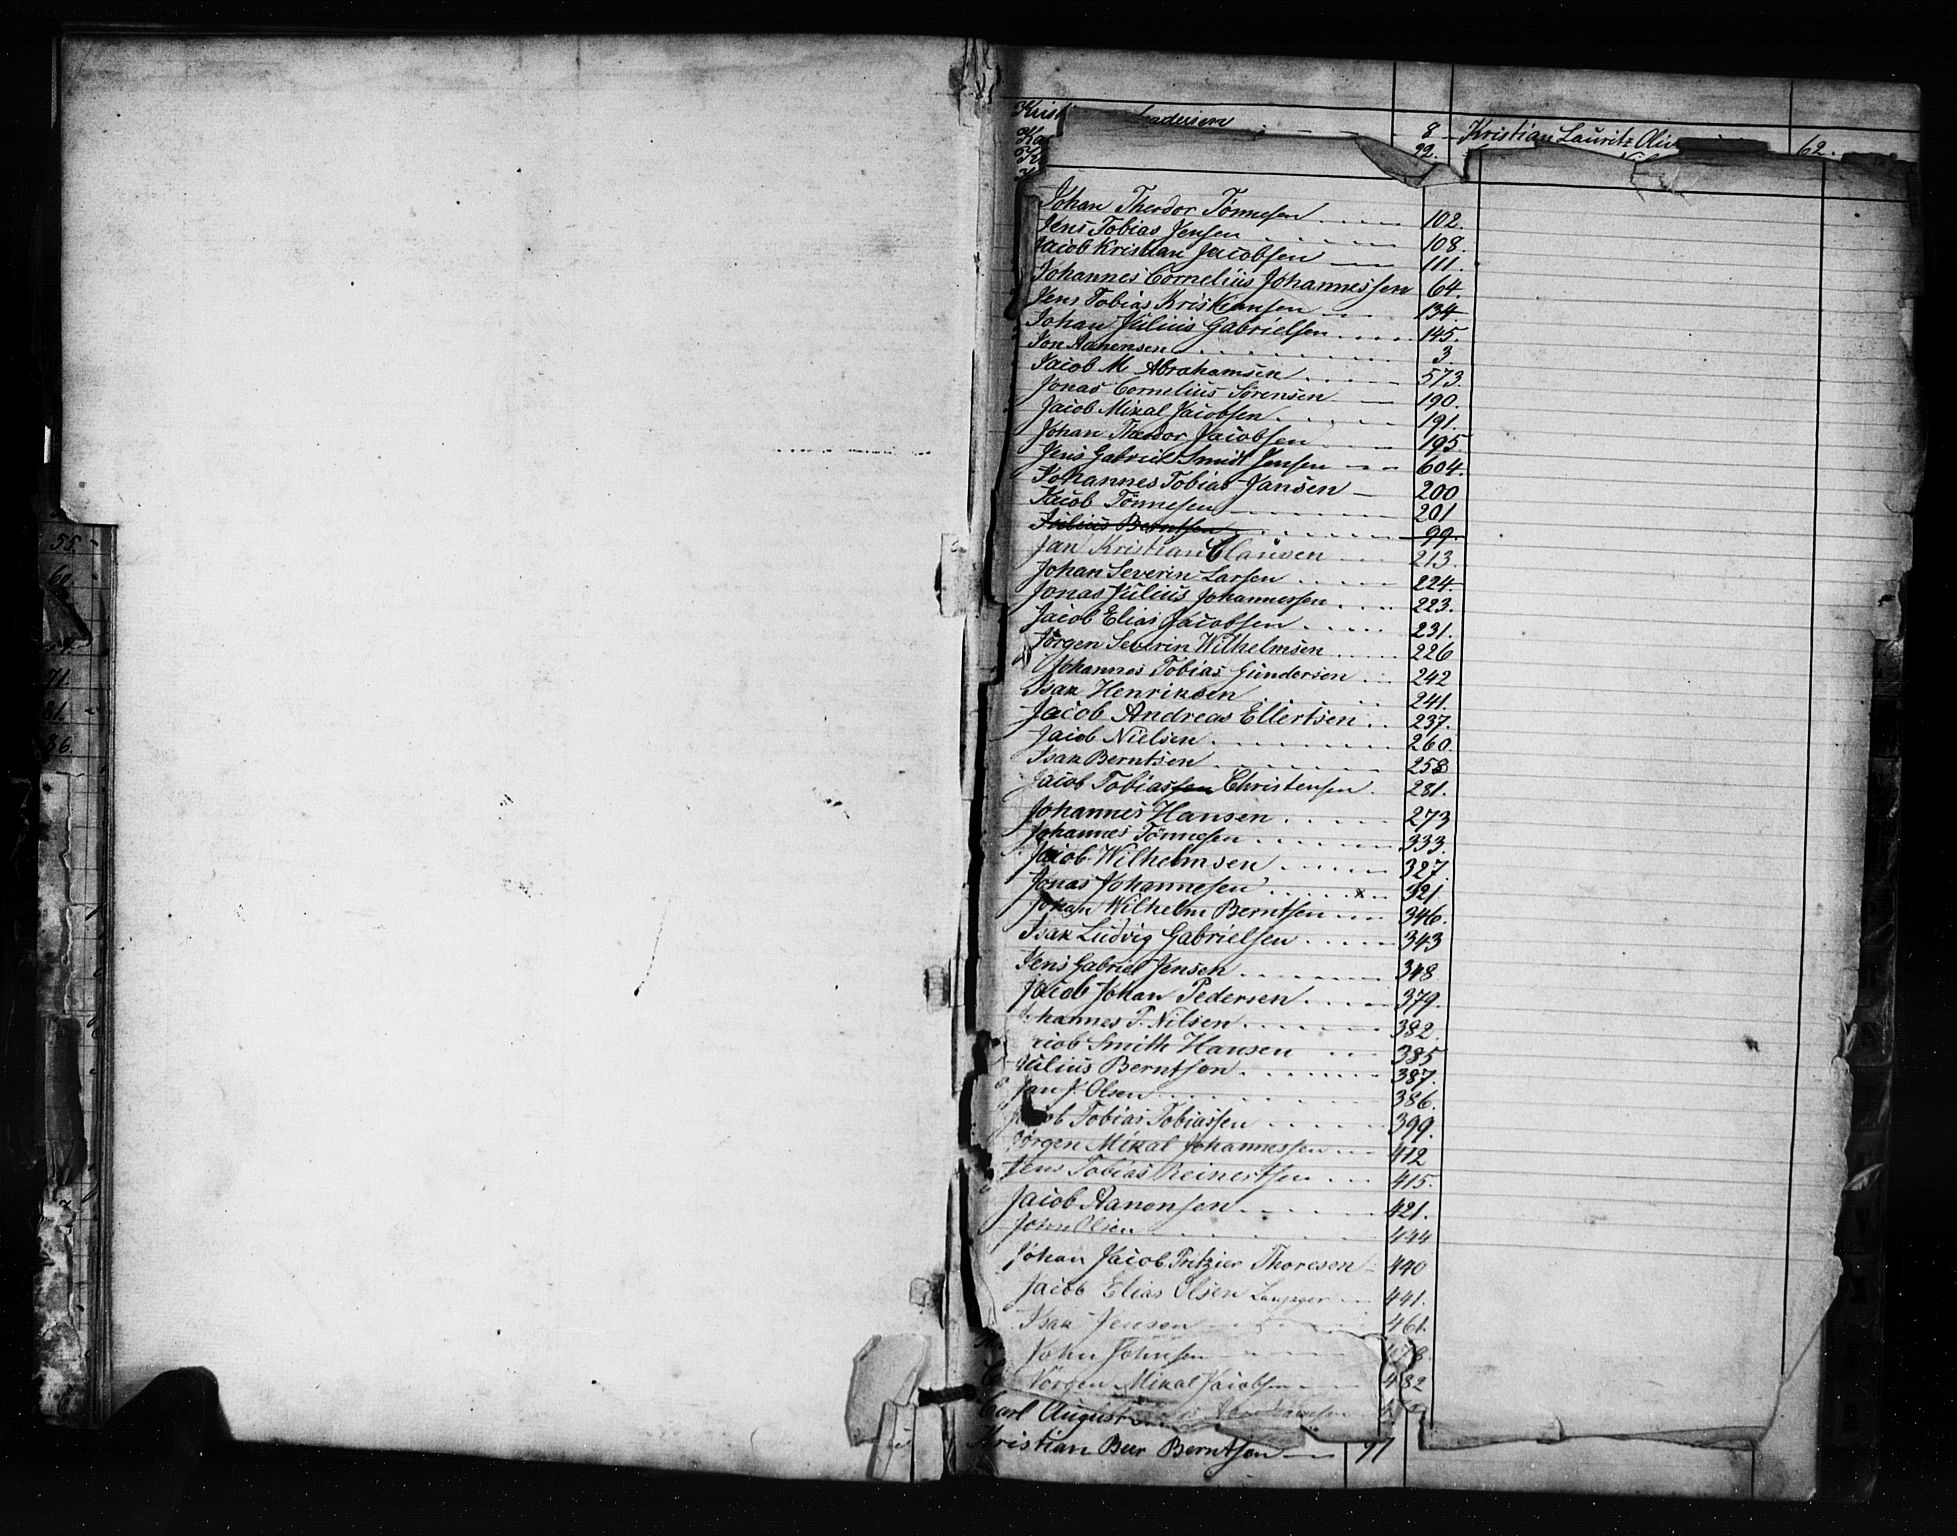 55.
60.
71.
81.
86.
Kristi Andersen 8 Kristian Lauritz 62.
Ka 22.
Johan Theodor Tönnesen 102.
Jens Tobias Jensen 108.
Jacob Kristian Jacobsen 111.
Johannes Cornelius Johannessen 64.
Jens Tobias Kristiansen 134.
Johan Julius Gabrielsen 145.
Jon Aanensen 3.
Jacob M. Abrahamsen 573.
Jonas Cornelius Sörensen 190.
Jacob Mikal Jacobsen 191.
Johan Theodor Jacobsen 195.
Jens Gabriel Smidt Jensen 604.
Johannes Tobias Jansen 200
Jacob Tönnesen 201
Julius Berntsen 99.
Jan Kristian Clausen 213.
Johan Severin Larsen 224.
Jonas Julius Johannessen 223.
Jacob Elias Jacobsen 231.
Jörgen Severin Wilhelmsen 226
Johannes Tobias Gundersen 242
Isak Henriksen 241.
Jacob Andreas Ellertsen 237.
Jacob Nielsen 260.
Isak Berntsen 258
Jacob Tobiassen Christensen 281.
Johannes Hansen 273
Johannes Tönnesen 333.
Jacob Wilhelmsen 327.
Jonas Johannesen x 321
Johan Wilhelm Berntsen 346.
Isak Ludvig Gabrielsen 343
Jens Gabriel Jensen 348.
Jacob Johan Pedersen 379.
hannes T. Nilsen 382.
acob Smith Hansen 385
Julius Berntsen 387.
Jan J. Olsen 386.
Jacob Tobias Tobiassen 399.
Jörgen Mikal Johannessen 412
Jens Tobias Reinertsen 415.
Jacob Aanonsen 421.
John Olsen 444
Johan Jacob Fritzier Thoresen 440
Jacob Elias Olsen 441.
Isak Jensen 461.
John Johnsen 478.
Jörgen Mikal Jacobsen 482
Carl August
Kristian Beer Berntsen 97